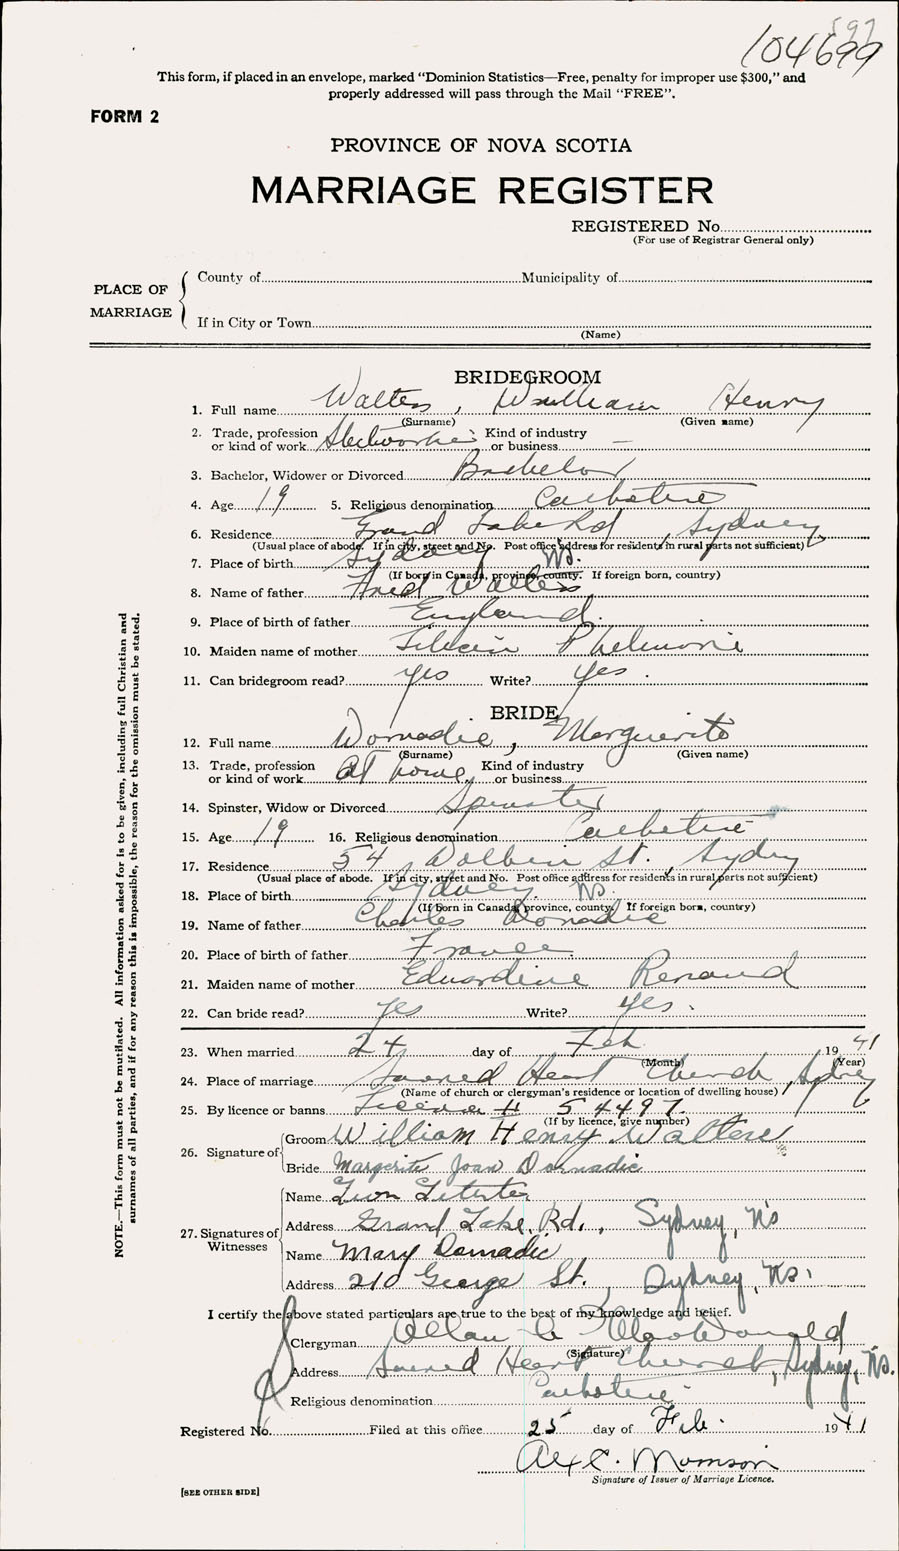 597
104699
This form, if placed in an envelope, marked "Dominion Statistics—Free, penalty for improper use $300," and
properly addressed will pass through the Mail "FREE".
FORM 2
PROVINCE OF NOVA SCOTIA
MARRIAGE REGISTER
REGISTERED No.
(For use of Registrar General only)
PLACE OF MARRIAGE
County of Municipality of
If in City or Town
(Name)
BRIDEGROOM
1. Full name Walters, William Henry
(Surname) (Given name)
2. Trade, profession or kind of work Steelworker Kind of industry or business —
3. Bachelor, Widower or Divorced Bachelor
4. Age 19 5. Religious denomination Catholic
6. Residence Grand Lake Rd, Sydney
(Usual place of abode. If in city, street and No. Post office address for residents in rural parts not sufficient)
7. Place of birth Sydney NS.
(If born in Canada, province, county. If foreign born, country)
8. Name of father Fred Walters
9. Place of birth of father England.
10. Maiden name of mother
11. Can bridegroom read? yes Write? yes.
BRIDE
12. Full name Domadic, Marguerite
(Surname) (Given name)
13. Trade, profession or kind of work At home, Kind of industry or business
14. Spinster, Widow or Divorced Spinster
15. Age 19 16. Religious denomination Catholic
17. Residence 54 Dolbin St., Sydney
(Usual place of abode. If in city, street and No. Post office address for residents in rural parts not sufficient)
18. Place of birth Sydney. NS.
(If born in Canada, province, county. If foreign born, country)
19. Name of father Charles Domadic
20. Place of birth of father France
21. Maiden name of mother Edwardine Renaud
22. Can bride read? yes Write? yes.
23. When married 24 day of Feb 1941
(Month) (Year)
24. Place of marriage Sacred Heart Church, Sydney
(Name of church or clergyman's residence or location of dwelling house)
25. By licence or banns License # 54497.
(If by licence, give number)
26. Signature of Groom William Henry Walters
Bride Margerite Joan Domadic
27. Signatures of Witnesses
Name Leon
Address Grand Lake Rd., Sydney, N's
Name Mary Domadic
Address 210 George St., Sydney, N.s.
I certify the above stated particulars are true to the best of my knowledge and belief.
Clergyman Allan MacDonald
(Signature)
Address Sacred Heart Church, Sydney, N's.
Religious denomination Catholic
Registered No. Filed at this office 25 day of Feb. 1941
Alex C.
Signature of Issuer of Marriage Licence.
[SEE OTHER SIDE]
NOTE.—This form must not be mutilated. All information asked for is to be given, including full Christian and
surnames of all parties, and if for any reason this is impossible, the reason for the omission must be stated.